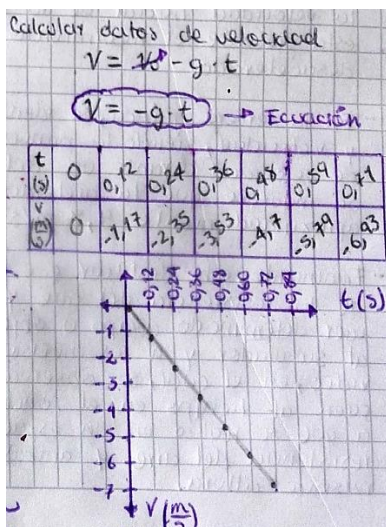 Calcular datos de velocidad
V = V₀ - g · t
V = -g · t → Ecuación
t (s) 0 0,12 0,24 0,36 0,48 0,59 0,71
v (m/s) 0 -1,17 -2,35 -3,53 -4,7 -5,79 -6,93
0,12 0,24 0,36 0,48 0,60 0,72 0,84 t(s)
-1
-2
-3
-4
-5
-6
-7
V (m/s)